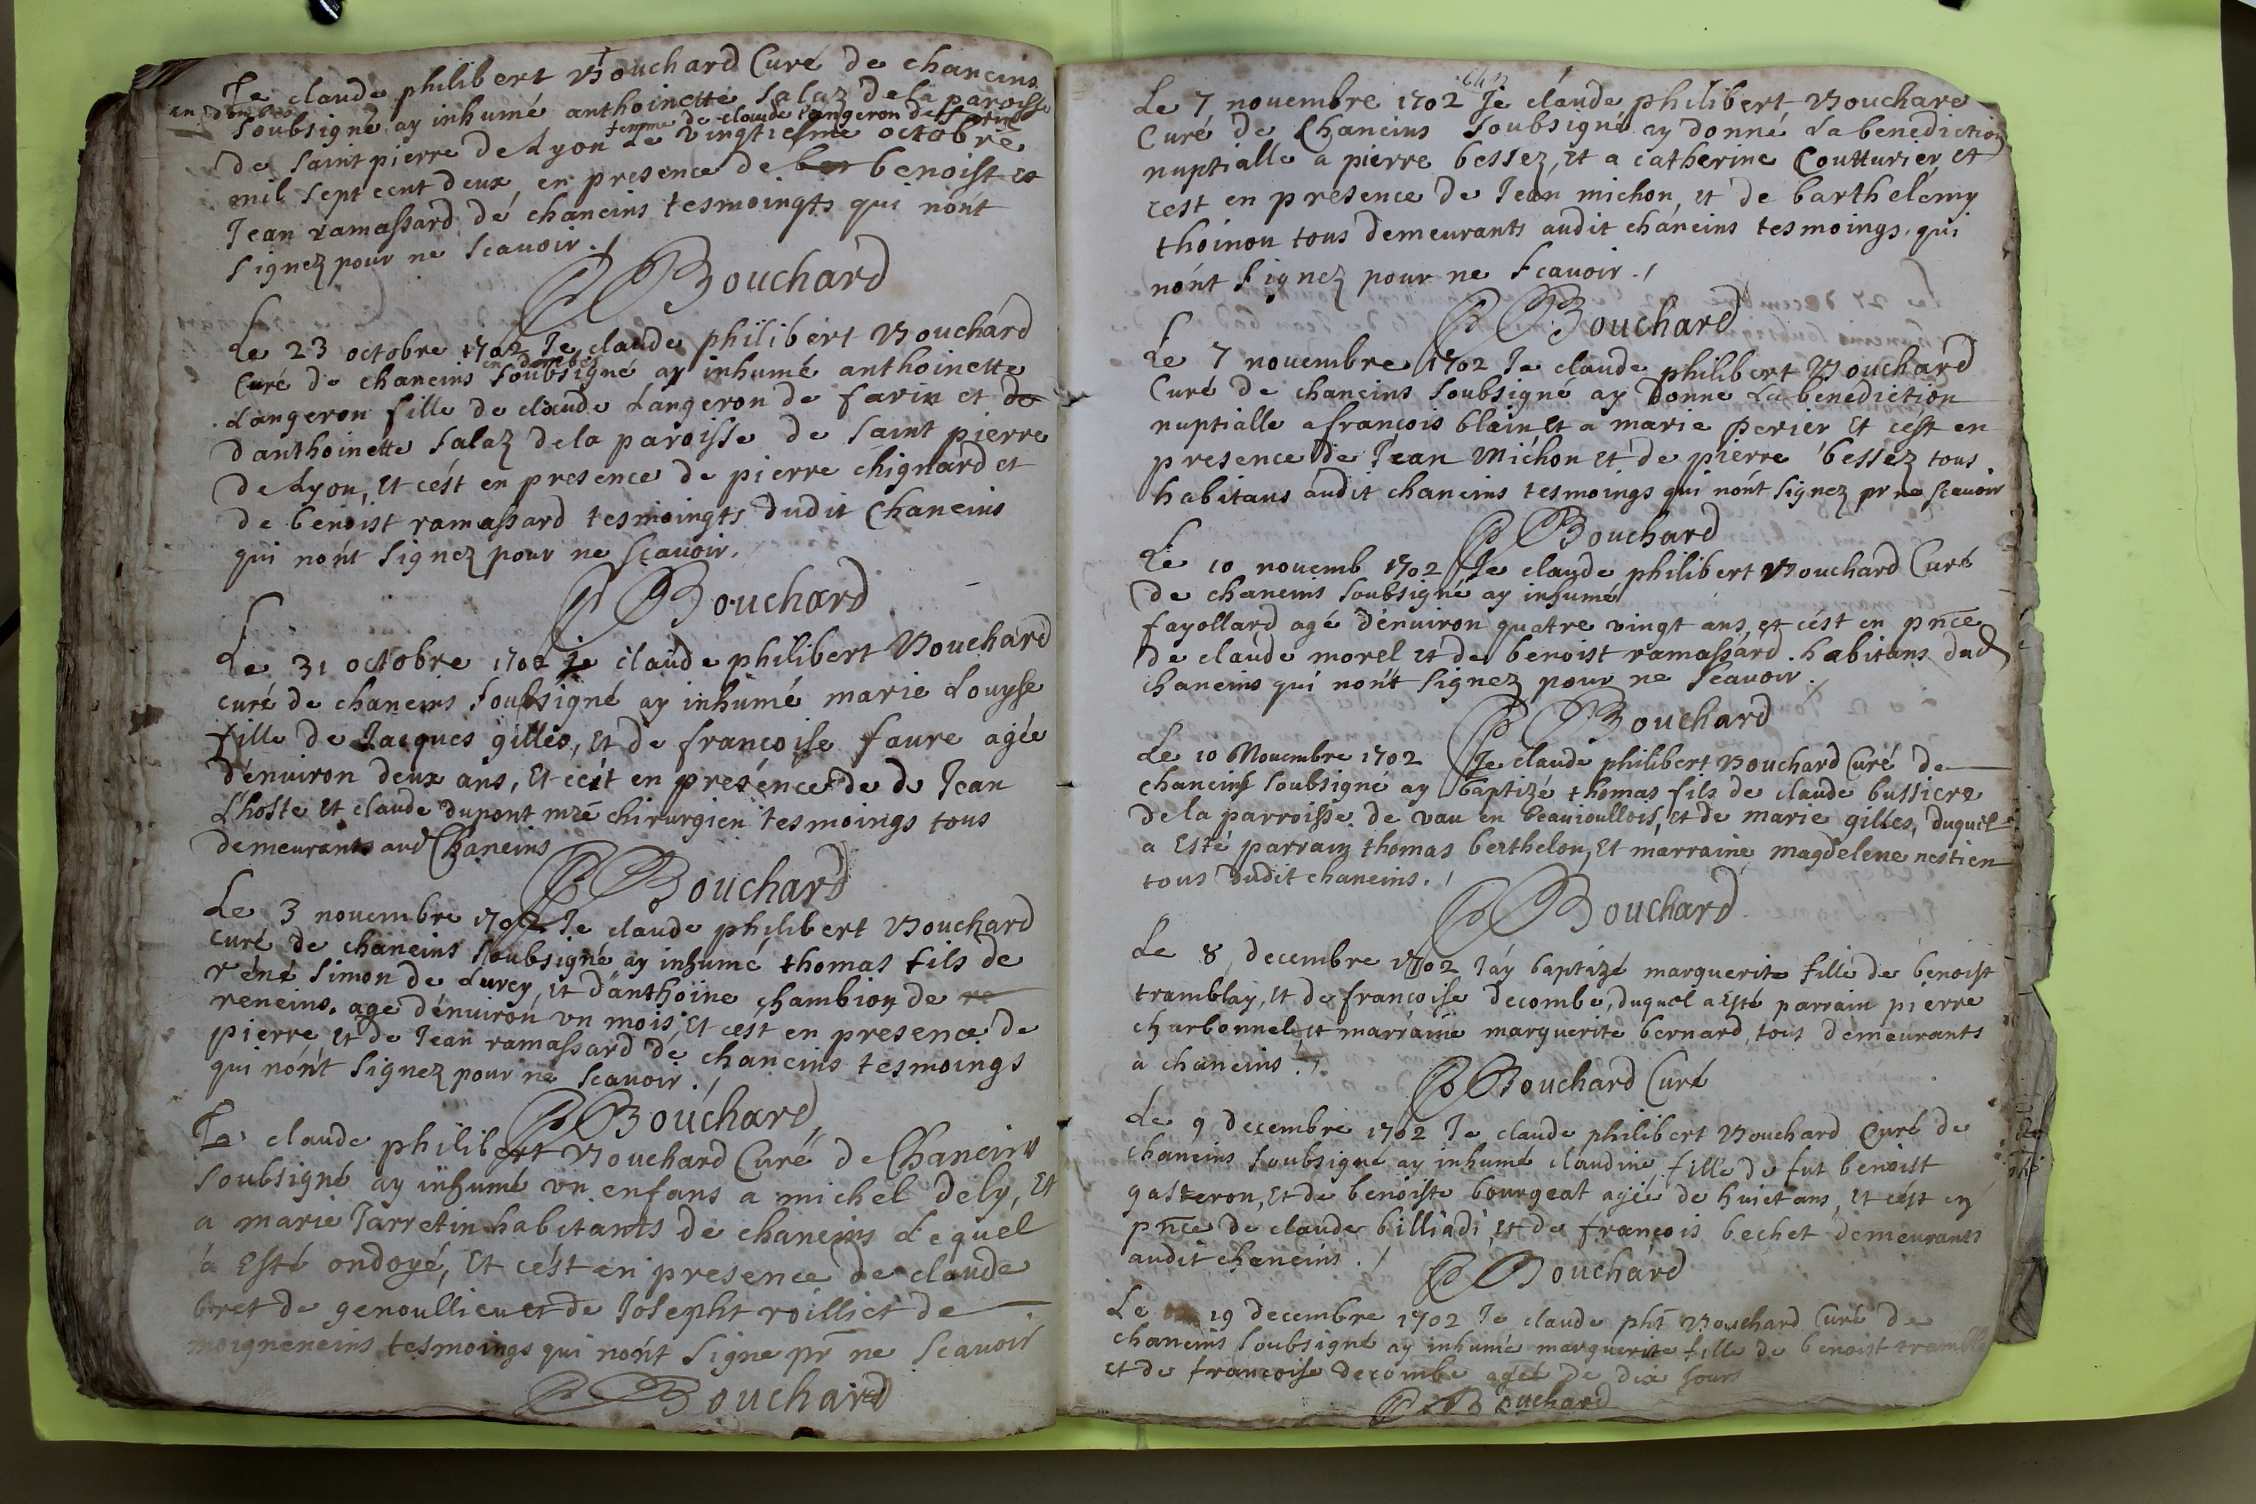 Je claude philibert Bouchard Curé de chaneins
en dombes
soubsigné ay inhumé anthoinette Salaz dela paroisse
femme de claude Langeron de farin
de saint pierre de Lyon Le vingtiesme octobre
mil sept cent deux, en presence de benoist et
Jean ramassard de chaneins tesmoingts qui nont
signez pour ne scavoir ./
Bouchard
Le 23 octobre 1702 Je claude philibert Bouchard
en dombes
Curé de chaneins soubsigné ay inhumé anthoinette
Langeron fille de claude Langeron de farin et de
danthoinette Salaz dela paroisse de saint pierre
de Lyon, et cést en presence de pierre chignard et
de benoist ramassard tesmoingts dudit Chaneins
qui nont signez pour ne scavoir.
Bouchard
Le 31 octobre 1702 je claude philibert Bouchard
curé de chaneins soubsigné ay inhumé marie Louyse
fille de Jacques gilles, et de francoise faure agée
dénuiron deux ans, Et cést en présence de de Jean
Lhoste et claude dupont mre chirurgien tesmoings tous
demeurants aud Chaneins
Bouchard
Le 3 nouembre 1702 Je claude philibert Bouchard
curé de chaneins soubsigné ay inhumé thomas fils de
réné simon de Lurcy, et dánthoine chambion de re
reneins, age dénuiron vn mois, Et cést en presence de
pierre et de Jean ramassard de chaneins tesmoings
qui nónt signez pour ne scavoir ./
Bouchard
Je claude philibert Bouchard Curé de Chaneins
soubsigné ay inhumé vn enfans a michel dely, Et
a marie Jarretin habitants de chaneins Lequel
à Esté ondoyé, Et cést en presence de claude
bret de genoullieu et de Joseph roilliet de
moigneneins tesmoings qui nónt signe pr ne scavoir
Bouchard
Le 7 nouembre 1702 Je claude philibert Bouchard
Curé de Chaneins soubsigné ay donné La benediction
nuptialle a pierre bessez, et a catherine Coutturier, et
cest en présence de Jean michon, et de barthelemy
thoinon tous demeurants audit chaneins tesmoings qui
nónt signez pour ne scavoir ./
Bouchard
Le 7 nouembre 1702 Je claude philibert Bouchard
Curé de chaneins soubsigné ay donné La benediction
nuptialle a françois blain et a marie perier et cest en
presence de Jean Michon et de pierre bessez tous
habitans audit chaneins tesmoings qui nónt signez pr ne scavoir
Bouchard
Le 10 nouemb 1702 Je claude philibert Bouchard Curé
de chaneins soubsigné ay inhumé
fayollard agé dénuiron quatre vingt ans, et cést en pnce
de claude morel et de benoist ramassard. habitans dud
chaneins qui nónt signez pour ne scavoir ./
Bouchard
Le 10 Nouembre 1702 Je claude philibert Bouchard Curé de
chaneins soubsigné ay baptizé thomas fils de claude bussiere
de la parroisse de vau en beauioullois, et de marie gilles, duquel
a Esté parrain thomas berthelon, Et marraine magdelene nestien
tous dudit chaneins ./
Bouchard
Le 8 decembre 1702 J'ay baptizé marguerite fille de benoist
tramblay, et de francoise decombe, duquel a Esté parrain pierre
charbonnel et marraine marguerite bernard, tous demeurants
a chaneins ./
Bouchard Curé
Le 9 decembre 1702 Je claude philibert Bouchard Curé de
chaneins soubsigné ay inhumé claudine fille de fut benoist
gasteron, Et de benoiste bourgeat agée de huict ans, et cést en
pnce de claude billiadi, et de françois bechet demeurants
audit chaneins ./
Bouchard
Le 19 decembre 1702 Je claude pht Bouchard Curé de
chaneins soubsigné ay inhumé marguerite fille de benoist
et de francoise decombe agée de dix jours
Bouchard